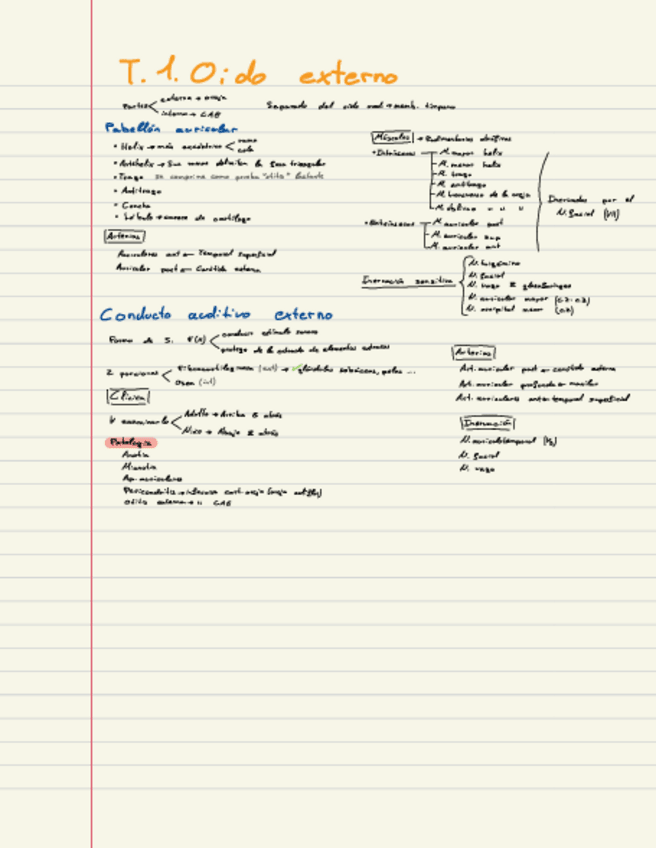 T.1. Oido externo
Partes externa → oreja
interna → CAE
Separado del oido med → memb. timpano
Pabellón auricular
• Helix → más
• Antihelix → Sus ramas delimitan la fosa triangular
• Trago se comprime como prueba "otitis"
• Antitrago
• Concha
• Lóbulo → carece de cartílago
Arterias
Auriculares ant ← Temporal superficial
Auricular post ← Carótida externa
Músculos →
• Intrínsecos
M. mayor helix
M. menor helix
M. trago
M. antitrago
M. de la oreja
M. oblicuo " " "
Inervados por el
N. facial (VII)
• Extrínsecos
M. auricular post
M. auricular sup
M. auricular ant
Inervación sensitiva
N. trigémino
N. facial
N. vago & glosofaríngeo
N. auricular mayor (c2-c3)
N. occipital menor (c2)
Conducto auditivo externo
Forma de S. F(x) conducir estímulo sonoro
protege de la entrada de elementos extraños
2 porciones Fibrocartilaginosa (ext) → glándulas sebáceas, pelos ...
Ósea (int)
Clínica
Adulto → Arriba & atrás
Niño → Abajo & atrás
Patología
Anotia
Microtia
Ap. auriculares
Pericondritis → infección cart. oreja
Otitis externa → " CAE
Arterias
Art. auricular post ← carótida externa
Art. auricular profunda ← maxilar
Art. auriculares anter ← temporal superficial
Inervación
N. auriculotemporal (V3)
N. facial
N. vago